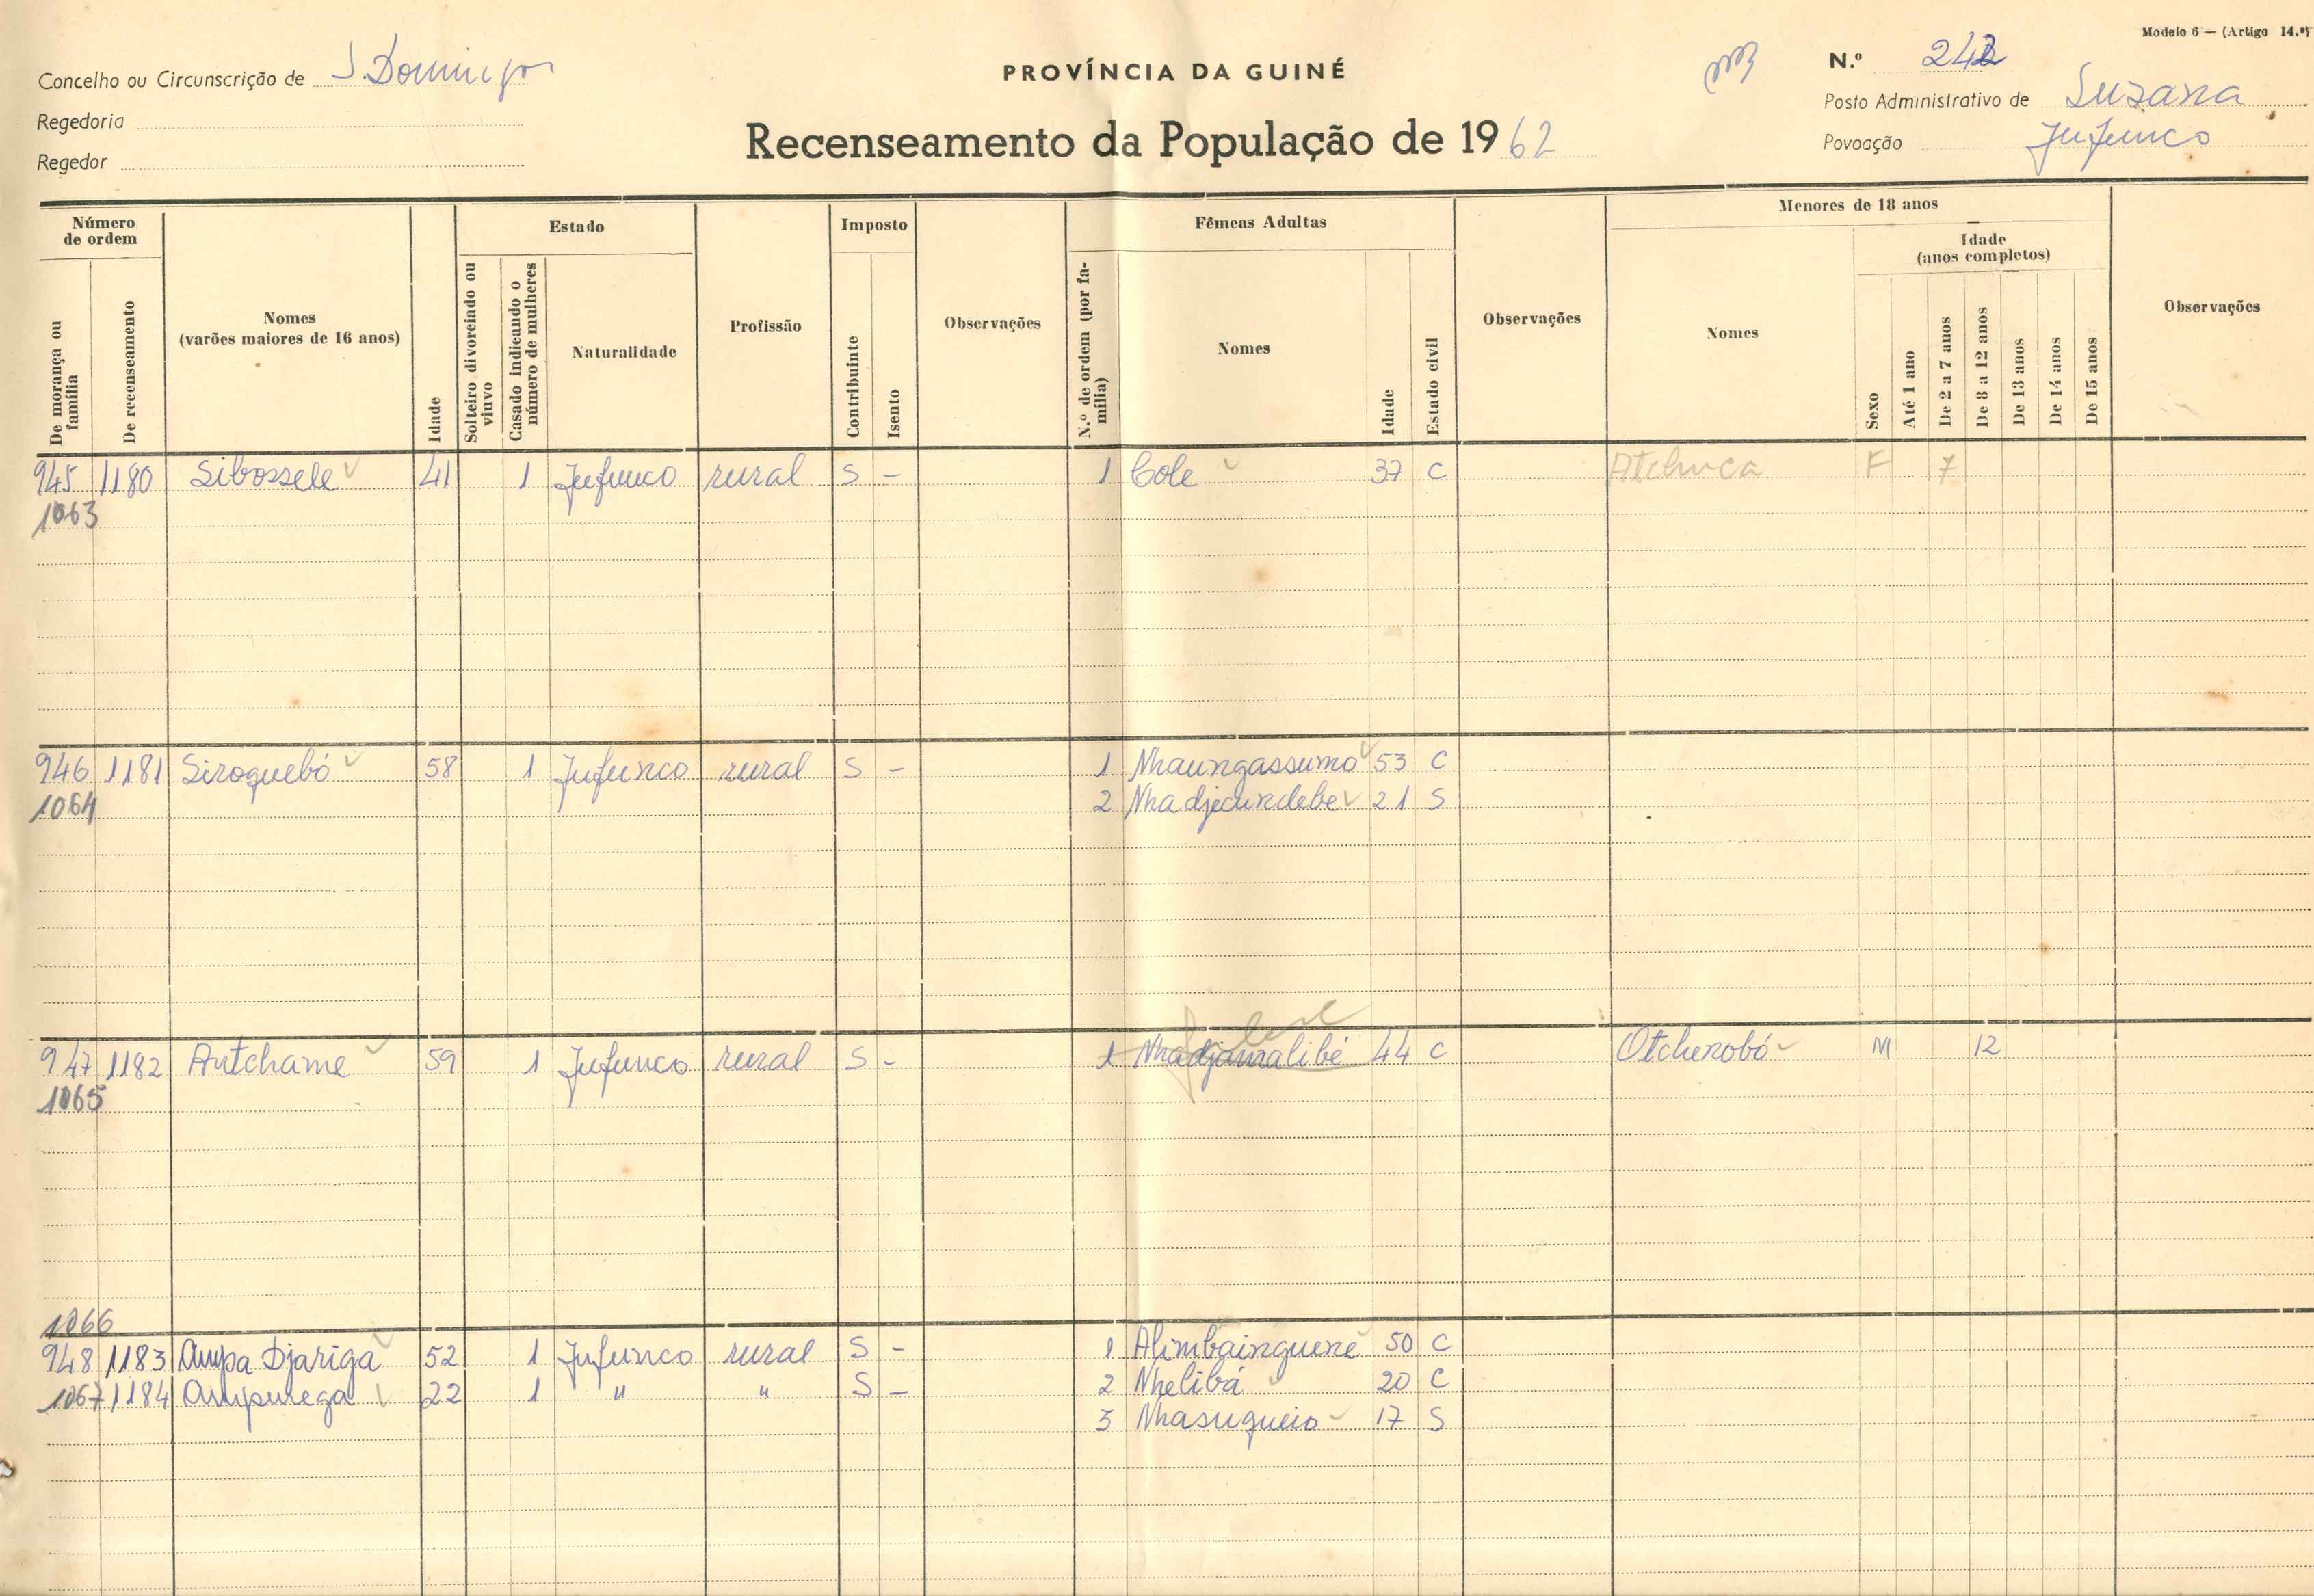 Modelo 6 — (Artigo 14.º)
Concelho ou Circunscrição de S. Domingos
PROVÍNCIA DA GUINÉ
N.º 242
Regedoria
Posto Administrativo de Suzana
Regedor
Recenseamento da População de 1962
Povoação Jufunco
Número de ordem
De morança ou família
De recenseamento
Nomes
(varões maiores de 16 anos)
Idade
Estado
Solteiro divorciado ou viuvo
Casado indicando o número de mulheres
Naturalidade
Profissão
Imposto
Contribuinte
Isento
Observações
N.º de ordem (por família)
Fêmeas Adultas
Nomes
Idade
Estado civil
Observações
Menores de 18 anos
Nomes
Sexo
Idade
(anos completos)
Até 1 ano
De 2 a 7 anos
De 8 a 12 anos
De 13 anos
De 14 anos
De 15 anos
Observações
945 1180 Sibossele 41 1 Jufunco rural S - 1 Cole 37 C Atchuca F 7
1063
946 1181 Siroquebó 58 1 Jufunco rural S - 1 Nhaungassumo 53 C
1064 2 Nhadjecundebe 21 S
947 1182 Antchame 59 1 Jufunco rural S - 1 Nhadjamalibé 44 C Otchenobó M 12
1065
1066
948 1183 Ampa Djariga 52 1 Jufunco rural S - 1 Alimbainguene 50 C
1067 1184 Ampurega 22 1 " " S - 2 Nhelibá 20 C
3 Nhasugueio 17 S